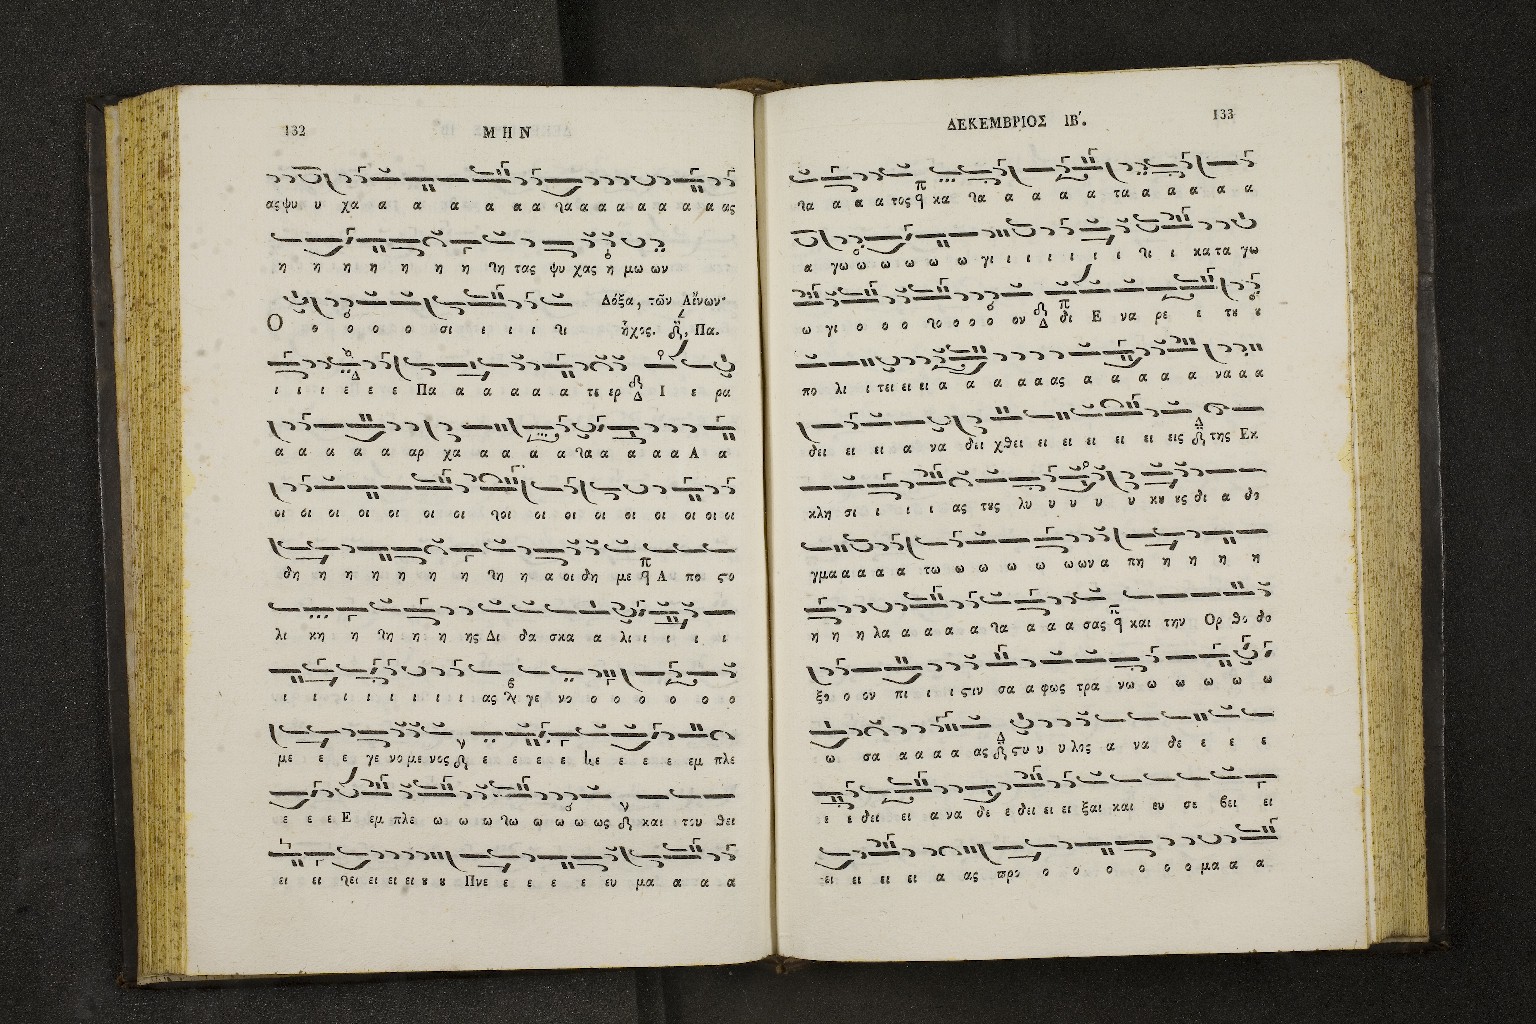 132
ΜΗΝ
ας ψυ υ χα α α α α α α τα α α α α α α α ας
η η η η η η η τη τας ψυ χας η μω ων
Δόξα, τῶν Αἴνων·
Ο ο ο ο ο σι ι ι ι τι ἦχος. Πα.
ι ι ι ε ε ε Πα α α α α α τε ερ Δ Ι ε ρα
α α α α α αρ χα α α α α τα α α α α Α α
οι οι οι οι οι οι τοι οι οι οι οι οι οι οι οι
δη η η η η η η τη η α οι δη με π Α πο ϛο
λι κη η τη η η ης Δι δα σκα α λι ι ι ι ι
ι ι ι ι ι ι ι ι ας γε νο ο ο ο ο ο ο
με ε ε γε νο με νος ε ε ε ε ε ε ε ε εμ πλε
ε ε ε Ε εμ πλε ω ω ω τω ω ω ω ως και του θει
ει ει τει ει ει ει ȣ ȣ Πνε ε ε ε ε ευ μα α α α
133
ΔΕΚΕΜΒΡΙΟΣ ΙΒ΄.
τα α α α τος κα τα α α α α τα α α α α α
α γω ω ω ω ω ω γι ι ι ι ι ι ι τι ι κα τα γω
ω γι ο ο ο το ο ο ο ον Δ δι Ε να ρε ε τȣ ȣ
πο λι ι τει ει ει α α α α α ας α α α α α να α α
δει ει ει α να δει χθει ει ει ει ει ει εις της Εκ
κλη σι ι ι ι ας τȣς λυ υ υ υ υ κȣ ȣς δι α δο
γμα α α α α τω ω ω ω ω ω ων α πη η η η η
η η η λα α α α α τα α α α σας και την Ορ θο δο
ξο ο ον πι ι ι ϛιν σα α φως τρα νω ω ω ω ω ω
ω σα α α α α ας ϛυ υ υ λος α να δε ε ε ε
ε ε δει ει α να δε ε δει ει ει ξαι και ευ σε βει ει
ει ει ει ει α ας προ ο ο ο ο ο ο μα α α